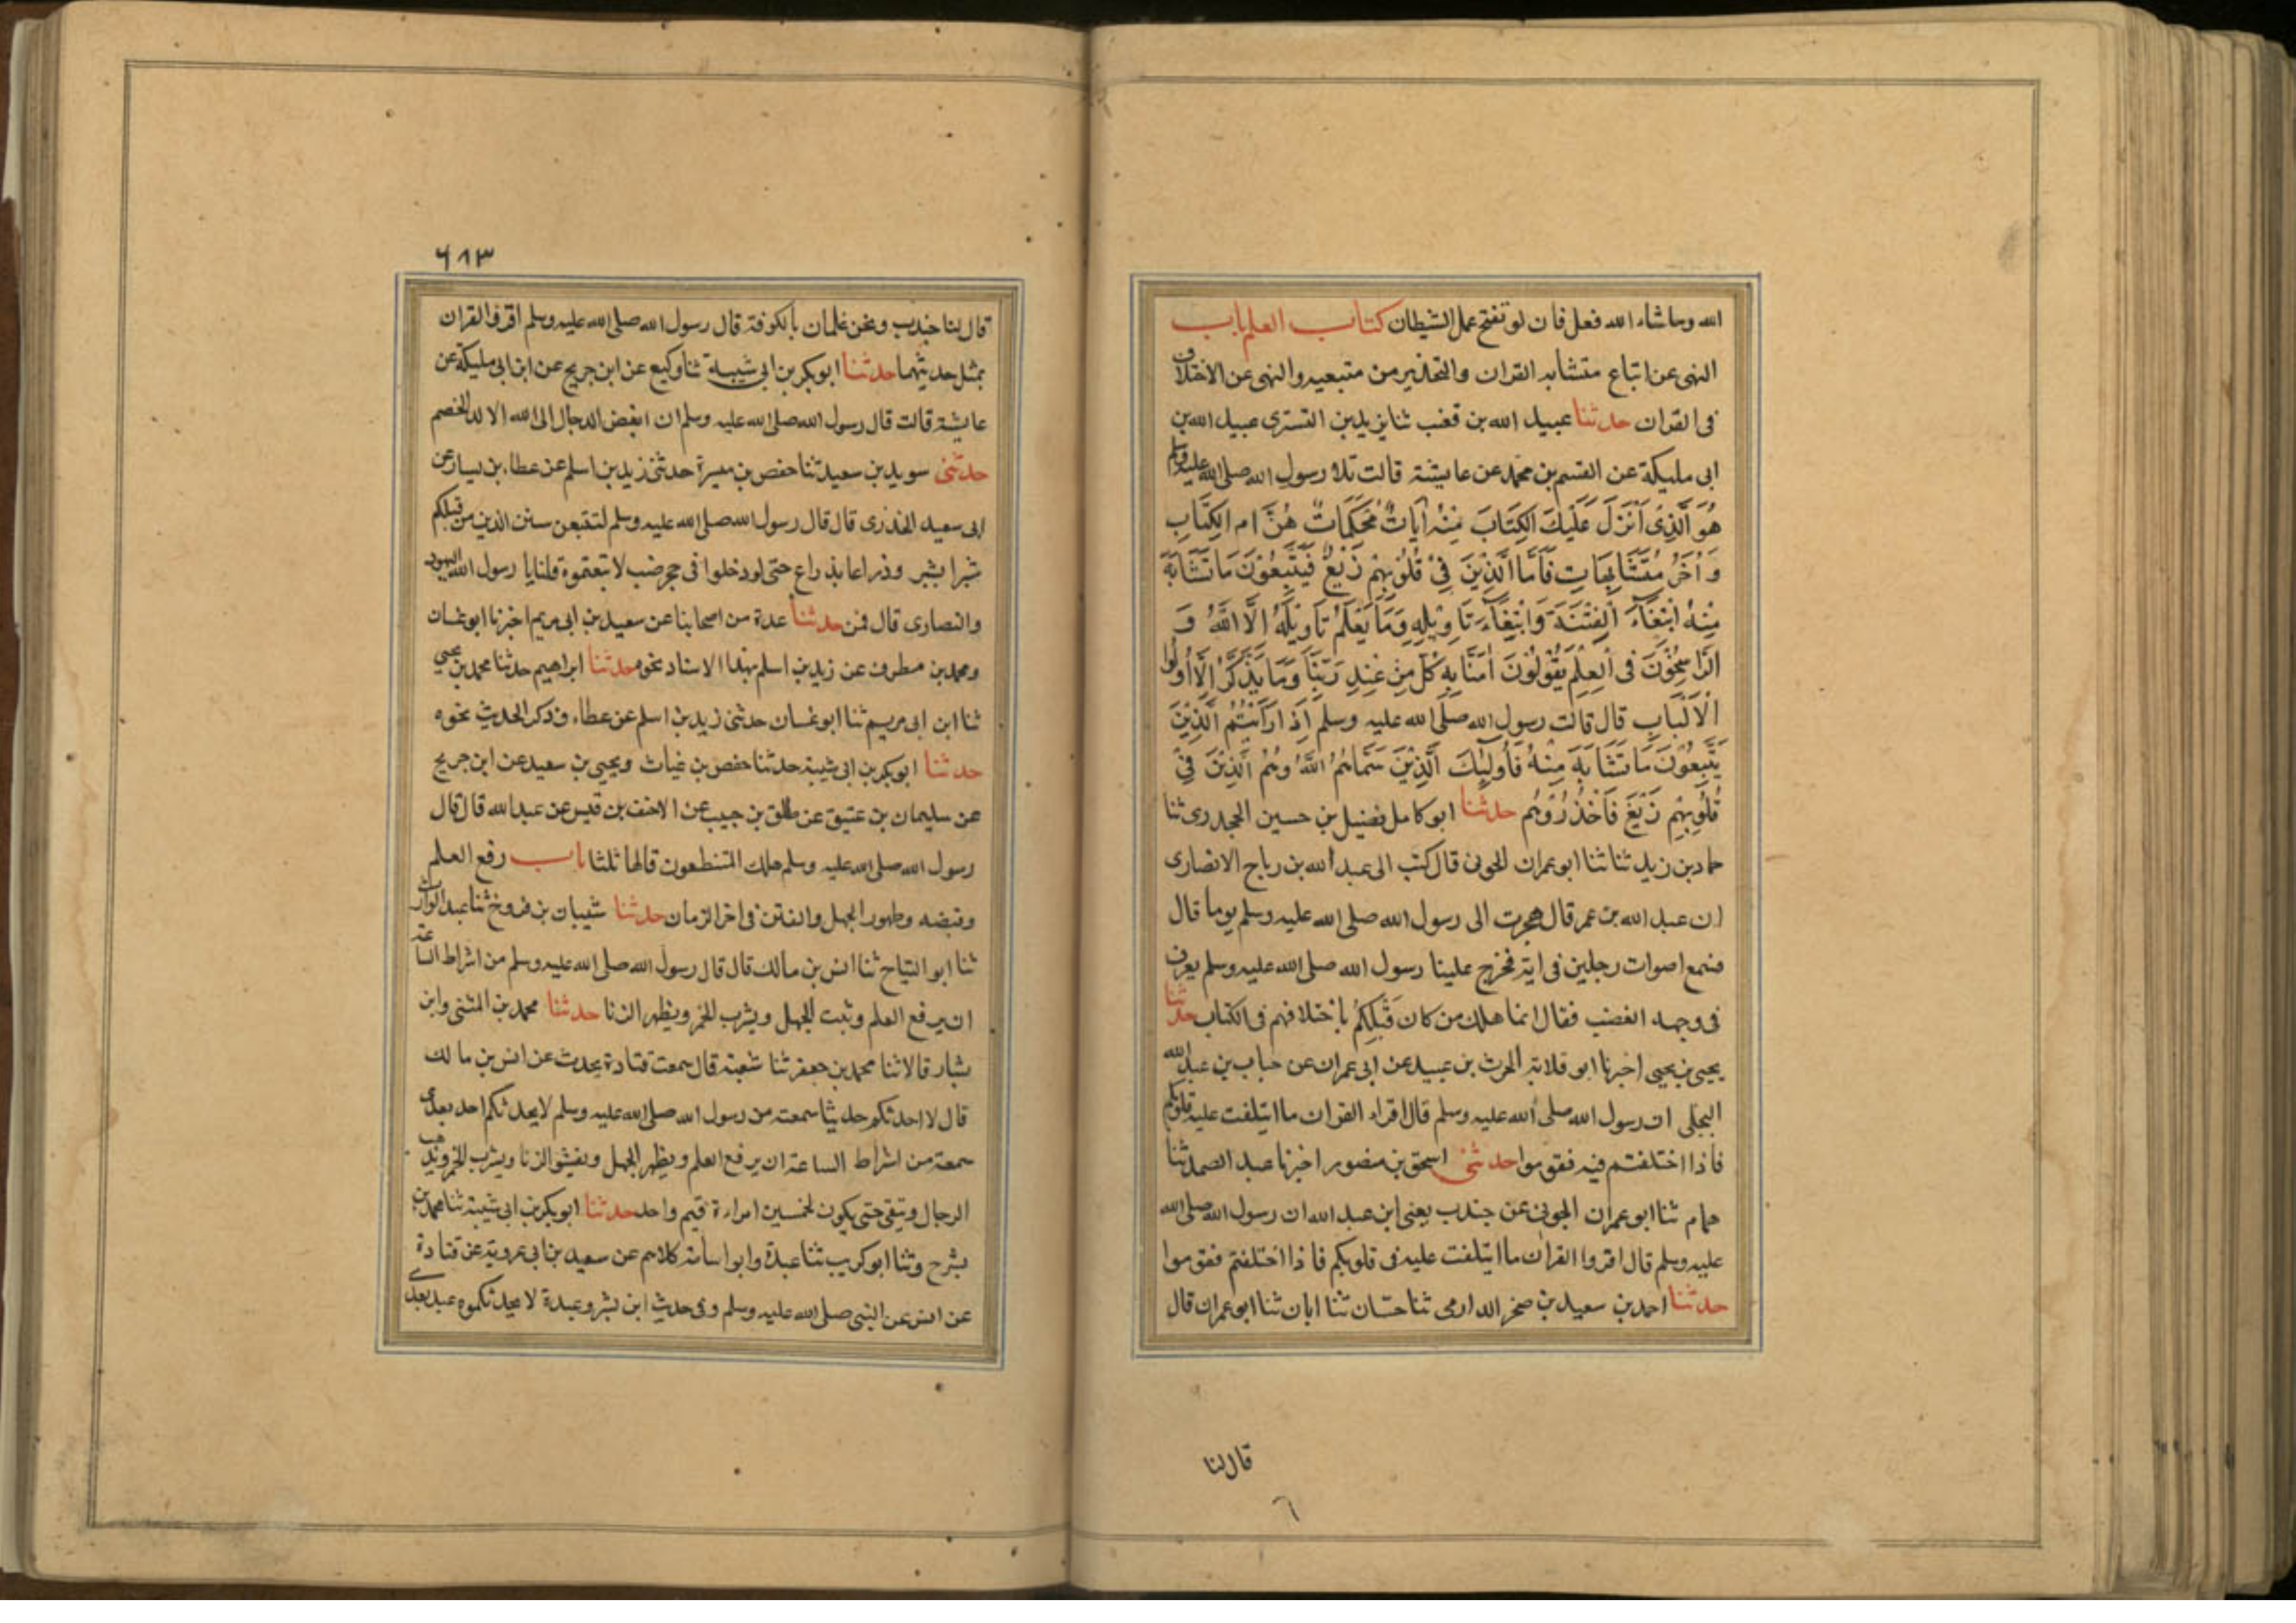 الله وما شاء الله فعل فان لو تفتح عمل الشيطان كتاب العلم باب
النهى عن اتباع متشابه القران والتحذير من متبعيه والنهى عن الاختلاف
فى القران حدثنا عبيد الله بن قعنب ثنا يزيد بن التسترى عبيد الله بن
ابى مليكة عن القسم بن محمد عن عايشة قالت تلا رسول الله صلى الله عليه وسلم
هُوَ الَّذِىْ اَنْزَلَ عَلَيْكَ الكِتَابَ مِنْهُ آيَاتٌ مُحْكَمَاتٌ هُنَّ ام الكِتَابِ
وَاُخَرُ مُتَشَابِهَاتٍ فَاَمَّا الَّذِيْنَ فِىْ قُلُوْبِهِمْ زَيْغٌ فَيَتَّبِعُوْنَ مَا تَشَابَهَ
مِنْهُ ابْتِغَآءَ الْفِتْنَةَ وَابْتِغَآءَ تَاوِيْلِهِ وَمَا يَعْلَمُ تَاوِيْلَهُ اِلَّا اللهُ وَ
الرَّاسِخُوْنَ فِى الْعِلْمِ يَقُوْلُوْنَ اٰمَنَّا بِهِ كُلٌّ مِنْ عِنْدِ رَبِّنَا وَمَا يَذَّكَّرُ اِلَّا اُولُوا
الْاَلْبَابِ قال قالت رسول الله صلى الله عليه وسلم اِذَا رَاَيْتُمُ الَّذِيْنَ
يَتَّبِعُوْنَ مَا تَشَابَهَ مِنْهُ فَاُولٰئِكَ الَّذِيْنَ سَمَّاهُمُ اللهُ وهُمُ الَّذِيْنَ فِىْ
قُلُوبِهِمْ زَيْغٌ فَاحْذَرُوْهُم حدثنا ابو كامل فضيل بن حسين الجحدرى ثنا
حماد بن زيد ثنا ثنا ابو عمران الجونى قال كتب الى عبد الله بن رباح الانصارى
ان عبد الله بن عمر قال هجرت الى رسول الله صلى الله عليه وسلم يوما قال
فسمع اصوات رجلين فى اية فخرج علينا رسول الله صلى الله عليه وسلم يعرف
فى وجهه الغضب فقال انما هلك من كان قَبْلِكُمْ باختلافهم فى الكتاب حدثنا
يحيى بن يحيى اخبرنا ابو قلابة الحرث بن عبيد عن ابى عمران عن جباب بن عبد الله
البجلى ان رسول الله صلى الله عليه وسلم قال اقراء القران ما ايتلفت عليه قلوبكم
فاذا اختلفتم فيه فقوموا حدثنى اسحق بن منصور اخبرنا عبد الصمد ثنا
همام ثنا ابو عمران الجونى عن جندب يعنى ابن عبد الله ان رسول الله صلى الله
عليه وسلم قال اقروا القران ما ايتلفت عليه فى قلوبكم فاذا اختلفتم فقوموا
حدثنا احمد بن سعيد بن صخر الدارمى ثنا حسان ثنا ابان ثنا ابو عمران قال
قال لنا
٦
٦١٣
قال لنا جندب ونحن غلمان بالكوفة قال رسول الله صلى الله عليه وسلم اقرؤا القران
بمثل حديثهما حدثنا ابو بكر بن ابى شيبة ثنا وكيع عن ابن جريج عن ابن ابى مليكة عن
عايشة قالت قال رسول الله صلى الله عليه وسلم ان ابغض الدجال الى الله الا لد الخصم
حدثنى سويد بن سعيد ثنا حفص بن ميسرة حدثنى زيد بن اسلم عن عطاء بن يسار عن
ابى سعيد الخذرى قال قال رسول الله صلى الله عليه وسلم لتتبعن سنن الذين من قبلكم
شبرا بشبر وذراعا بذراع حتى لو دخلوا فى حجر ضب لا تبعتموه قلنا يا رسول الله اليهود
والنصارى قال فمن حدثنا عدة من اصحابنا عن سعيد بن ابى مريم اخبرنا ابو غسان
ومحمد بن مطرف عن زيد بن اسلم بهذا الاسناد نحوه حدثنا ابراهيم حدثنا محمد بن يحيى
ثنا ابن ابى مريم ثنا ابو غسان حدثنى زيد بن اسلم عن عطاء وذكر الحديث نحوه
حدثنا ابو بكر بن ابى شيبة حدثنا حفص بن غياث ويحيى بن سعيد عن ابن جريج
عن سليمان بن عتيق عن طلق بن حبيب عن الاحنف بن قيس عن عبد الله قال قال
رسول الله صلى الله عليه وسلم هلك المتنطعون قالها ثلثا باب رفع العلم
وقبضه وظهور الجهل والفتن فى اخر الزمان حدثنا شيبان بن فروخ ثنا عبد الوارث
ثنا ابو التياح ثنا انس بن مالك قال قال رسول الله صلى الله عليه وسلم من اشراط الساعة
ان يرفع العلم ويثبت الجهل ويشرب الخمر ويظهر الزنا حدثنا محمد بن المثنى وابن
بشار قالا ثنا محمد بن جعفر ثنا شعبة قال سمعت قتادة يحدث عن انس بن مالك
قال لا احدثكم حديثا سمعته من رسول الله صلى الله عليه وسلم لا يحدثكم احد بعدى
سمعته من اشراط الساعة ان يرفع العلم ويظهر الجهل ويفشو الزنا ويشرب الخمر ويذهب
الرجال وتبقى حتى يكون لخمسين امراءة قيم واحد حدثنا ابو بكر بن ابى شيبة ثنا محمد بن
بشر ح وثنا ابو كريب ثنا عبدة وابو اسامة كلاهم عن سعيد بن ابى عروبة عن قتادة
عن انس عن النبى صلى الله عليه وسلم وفى حديث ابن بشر وعبدة لا يحدثكموه عبد بعدى